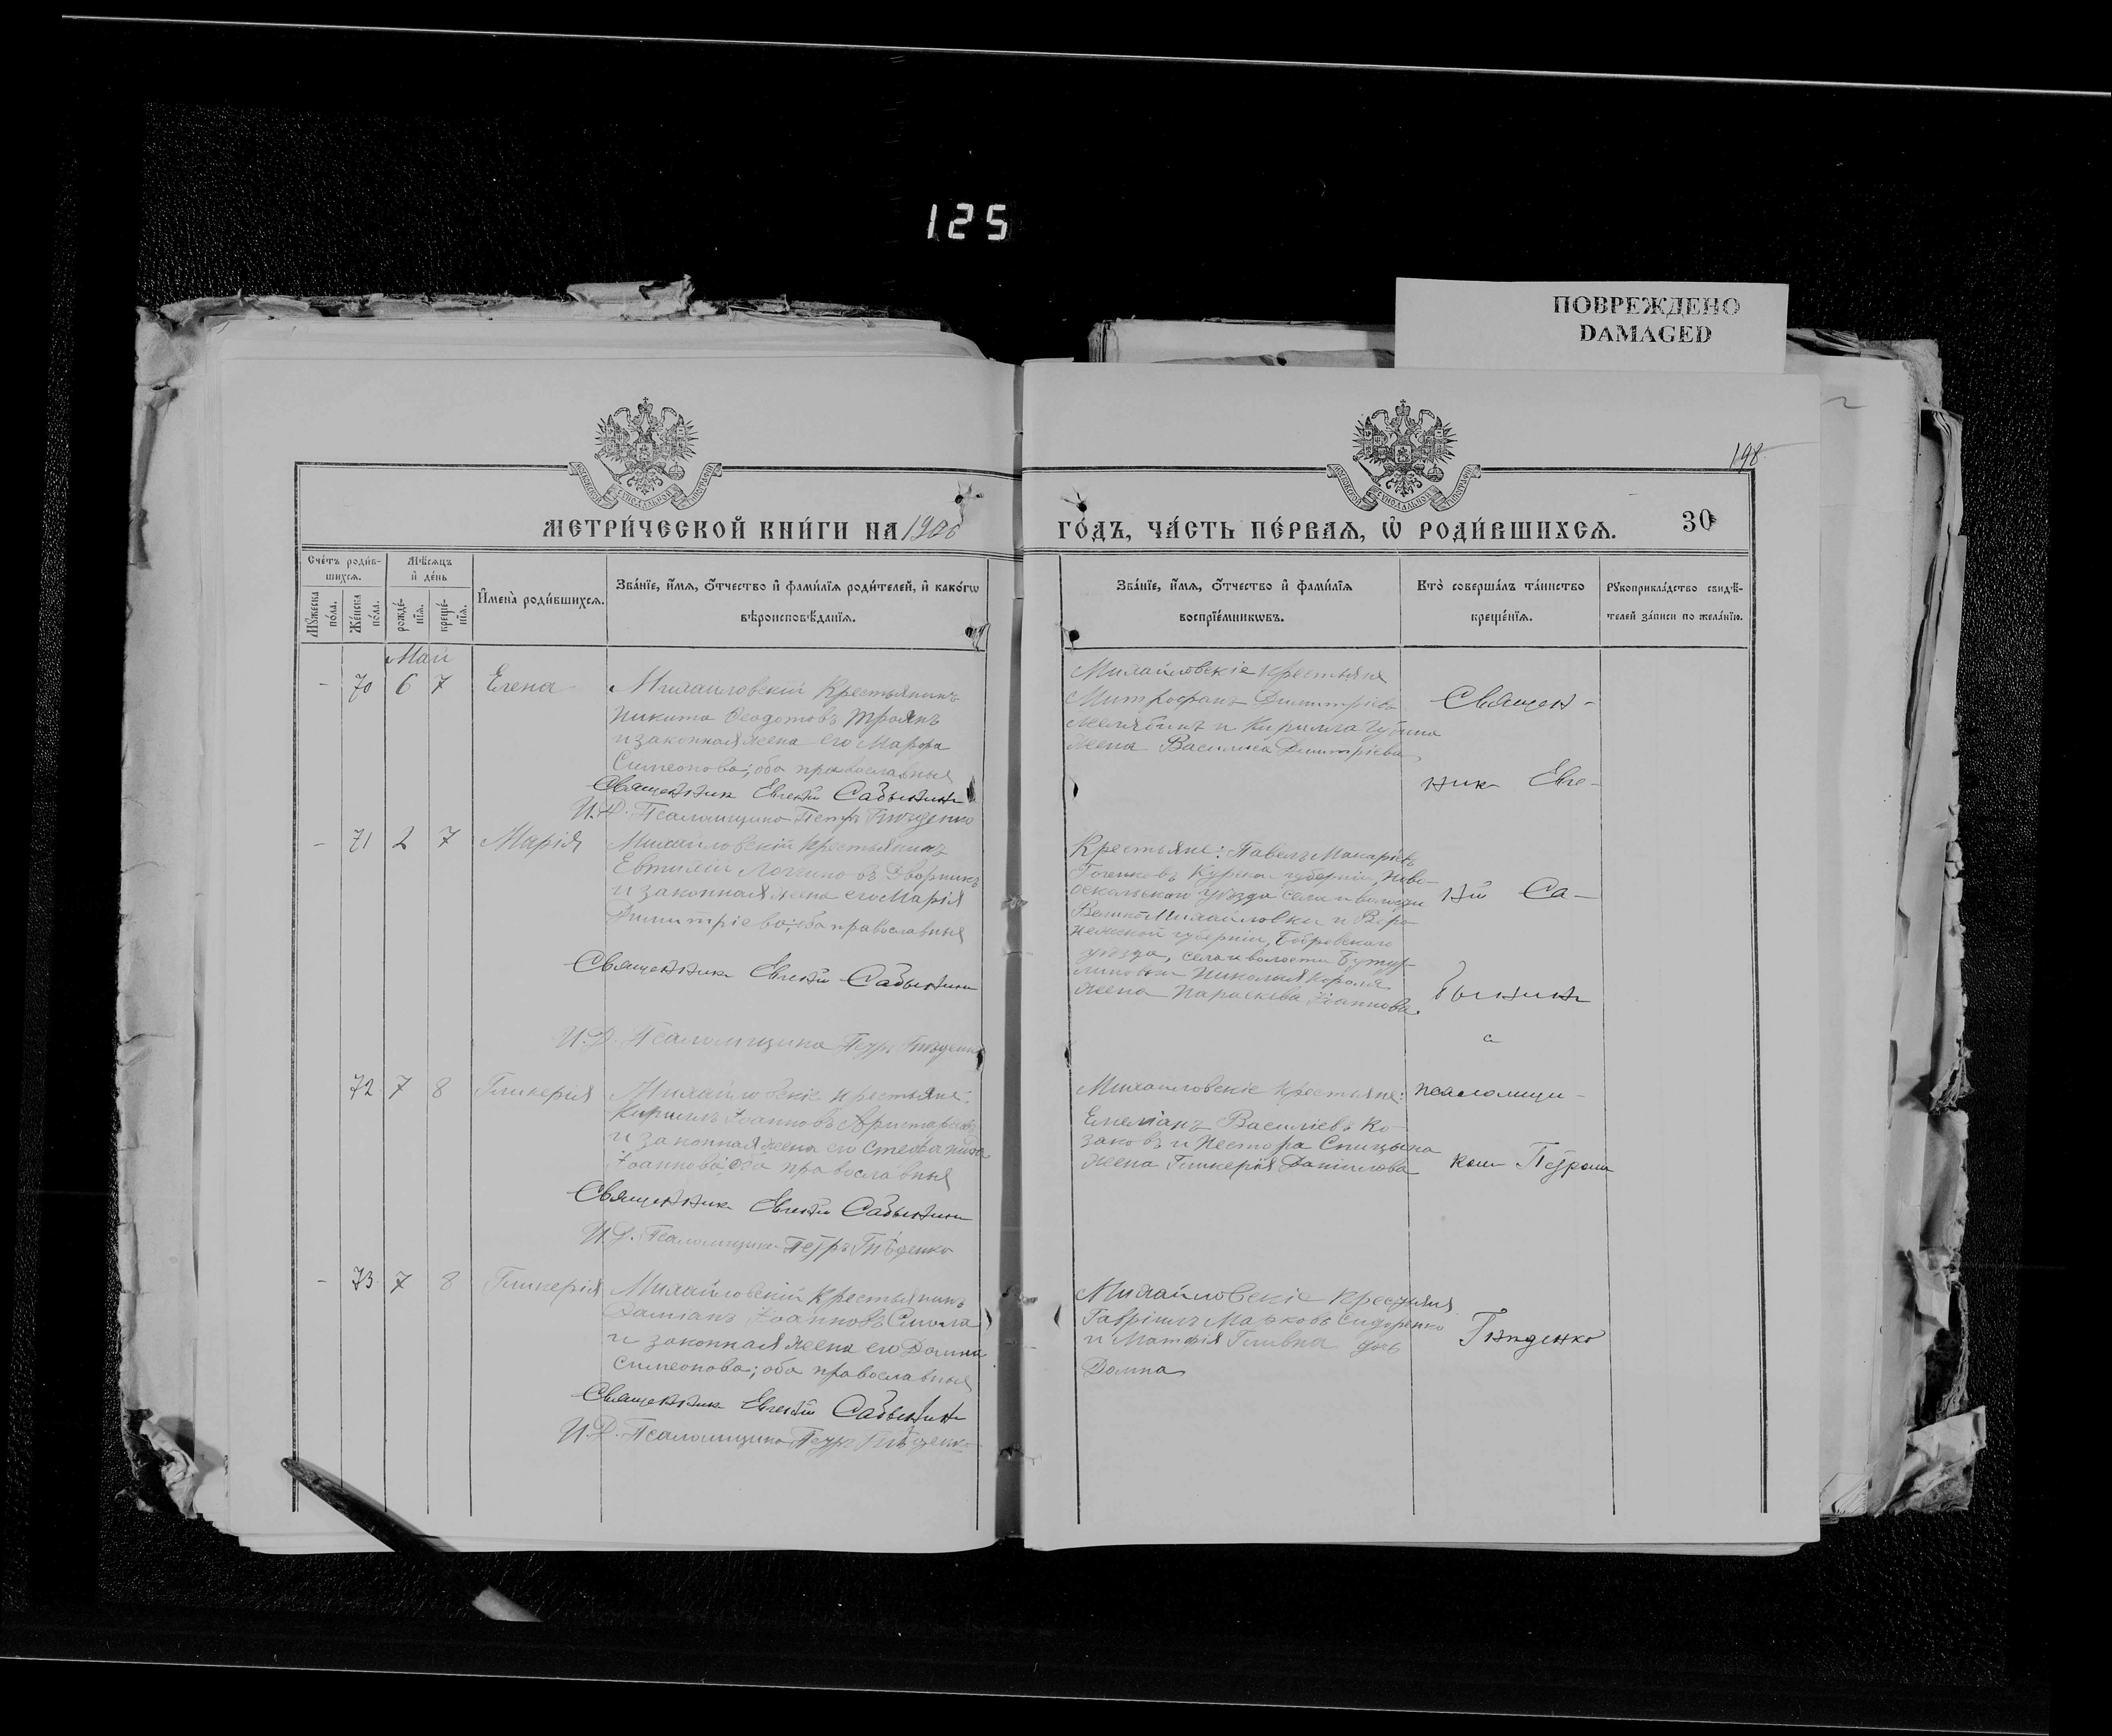 125
ПОВРЕЖДЕНО
DAMAGED
198
МЕТРИ́ЧЕСКОЙ КНИ́ГИ НА 1906
ГО́ДЪ, ЧА́СТЬ ПЕ́РВАЯ, Ѡ҆ РОДИ́ВШИХСЯ.
30
Сче́тъ роди́в-
шихся.
Мꙋ́жеска
по́ла.
Же́нска
по́ла.
Мѣ́сяцъ
и҆ де́нь
рожде́-
нїя.
креще́-
нїя.
И҆мена̀ роди́вшихся.
Зва́нїе, и҆́мя, о҆́тчество и҆ фами́лїя роди́телей, и҆ како́гѡ
вѣроисповѣ́данїя.
Зва́нїе, и҆́мя, о҆́тчество и҆ фами́лїя
воспрїе́мникѡвъ.
Кто̀ соверша́лъ та́инство
креще́нїя.
Рꙋкоприкла́дство свидѣ́-
телей за́писи по жела́нїю.
Май
- 70 6 7 Елена
Михайловскій Крестьянинъ
Никита Ѳеодотовъ Троянъ
и законная жена его Марѳа
Симеонова; оба православныя
Священникъ Евгеній Сабынинъ
И.Д. Псаломщика Петръ Гнѣденко
Михайловскіе Крестьяне
Митрофанъ Димитріевъ
и Кирилла Губина
жена Василиса Димитріева
- 71 2 7 Марія
Михайловскій Крестьянинъ
Евтихій Логгиновъ Дворникъ
и законная жена его Марія
Димитріева; оба православныя
Священникъ Евгеній Сабынинъ
И.Д. Псаломщика Петръ Гнѣденко
Крестьяне: Павелъ Макаріевъ
Курской губерніи, Ново-
оскольскаго уѣзда села и волости
Велико-Михайловки и Воро-
нежской губерніи, Бобровскаго
уѣзда, села и волости Бутур-
линовки Николая Короля
жена Параскева Іоаннова
72 7 8 Гликерія
Михайловскіе крестьяне:
Кириллъ Іоанновъ Аристарховъ
и законная жена его Стефанида
Іоаннова; оба православныя
Священникъ Евгеній Сабынинъ
И.Д. Псаломщика Петръ Гнѣденко
Михайловскіе Крестьяне:
Емеліанъ Василіевъ Ко-
заковъ и Нестора Спицына
жена Гликерія Даніилова
- 73 7 8 Гликерія
Михайловскій Крестьянинъ
Даміанъ Іоанновъ Смола
и законная жена его Домна
Симеонова; оба православныя
Священникъ Евгеній Сабынинъ
И.Д. Псаломщика Петръ Гнѣденко
Михайловскіе Крестьяне
Гавріилъ Марковъ Сидоренко
и Матѳія Гливна дочь
Домна
Священ-
никъ Евге-
ній Са-
бынинъ
съ
псаломщи-
комъ Петромъ
Гнѣденко